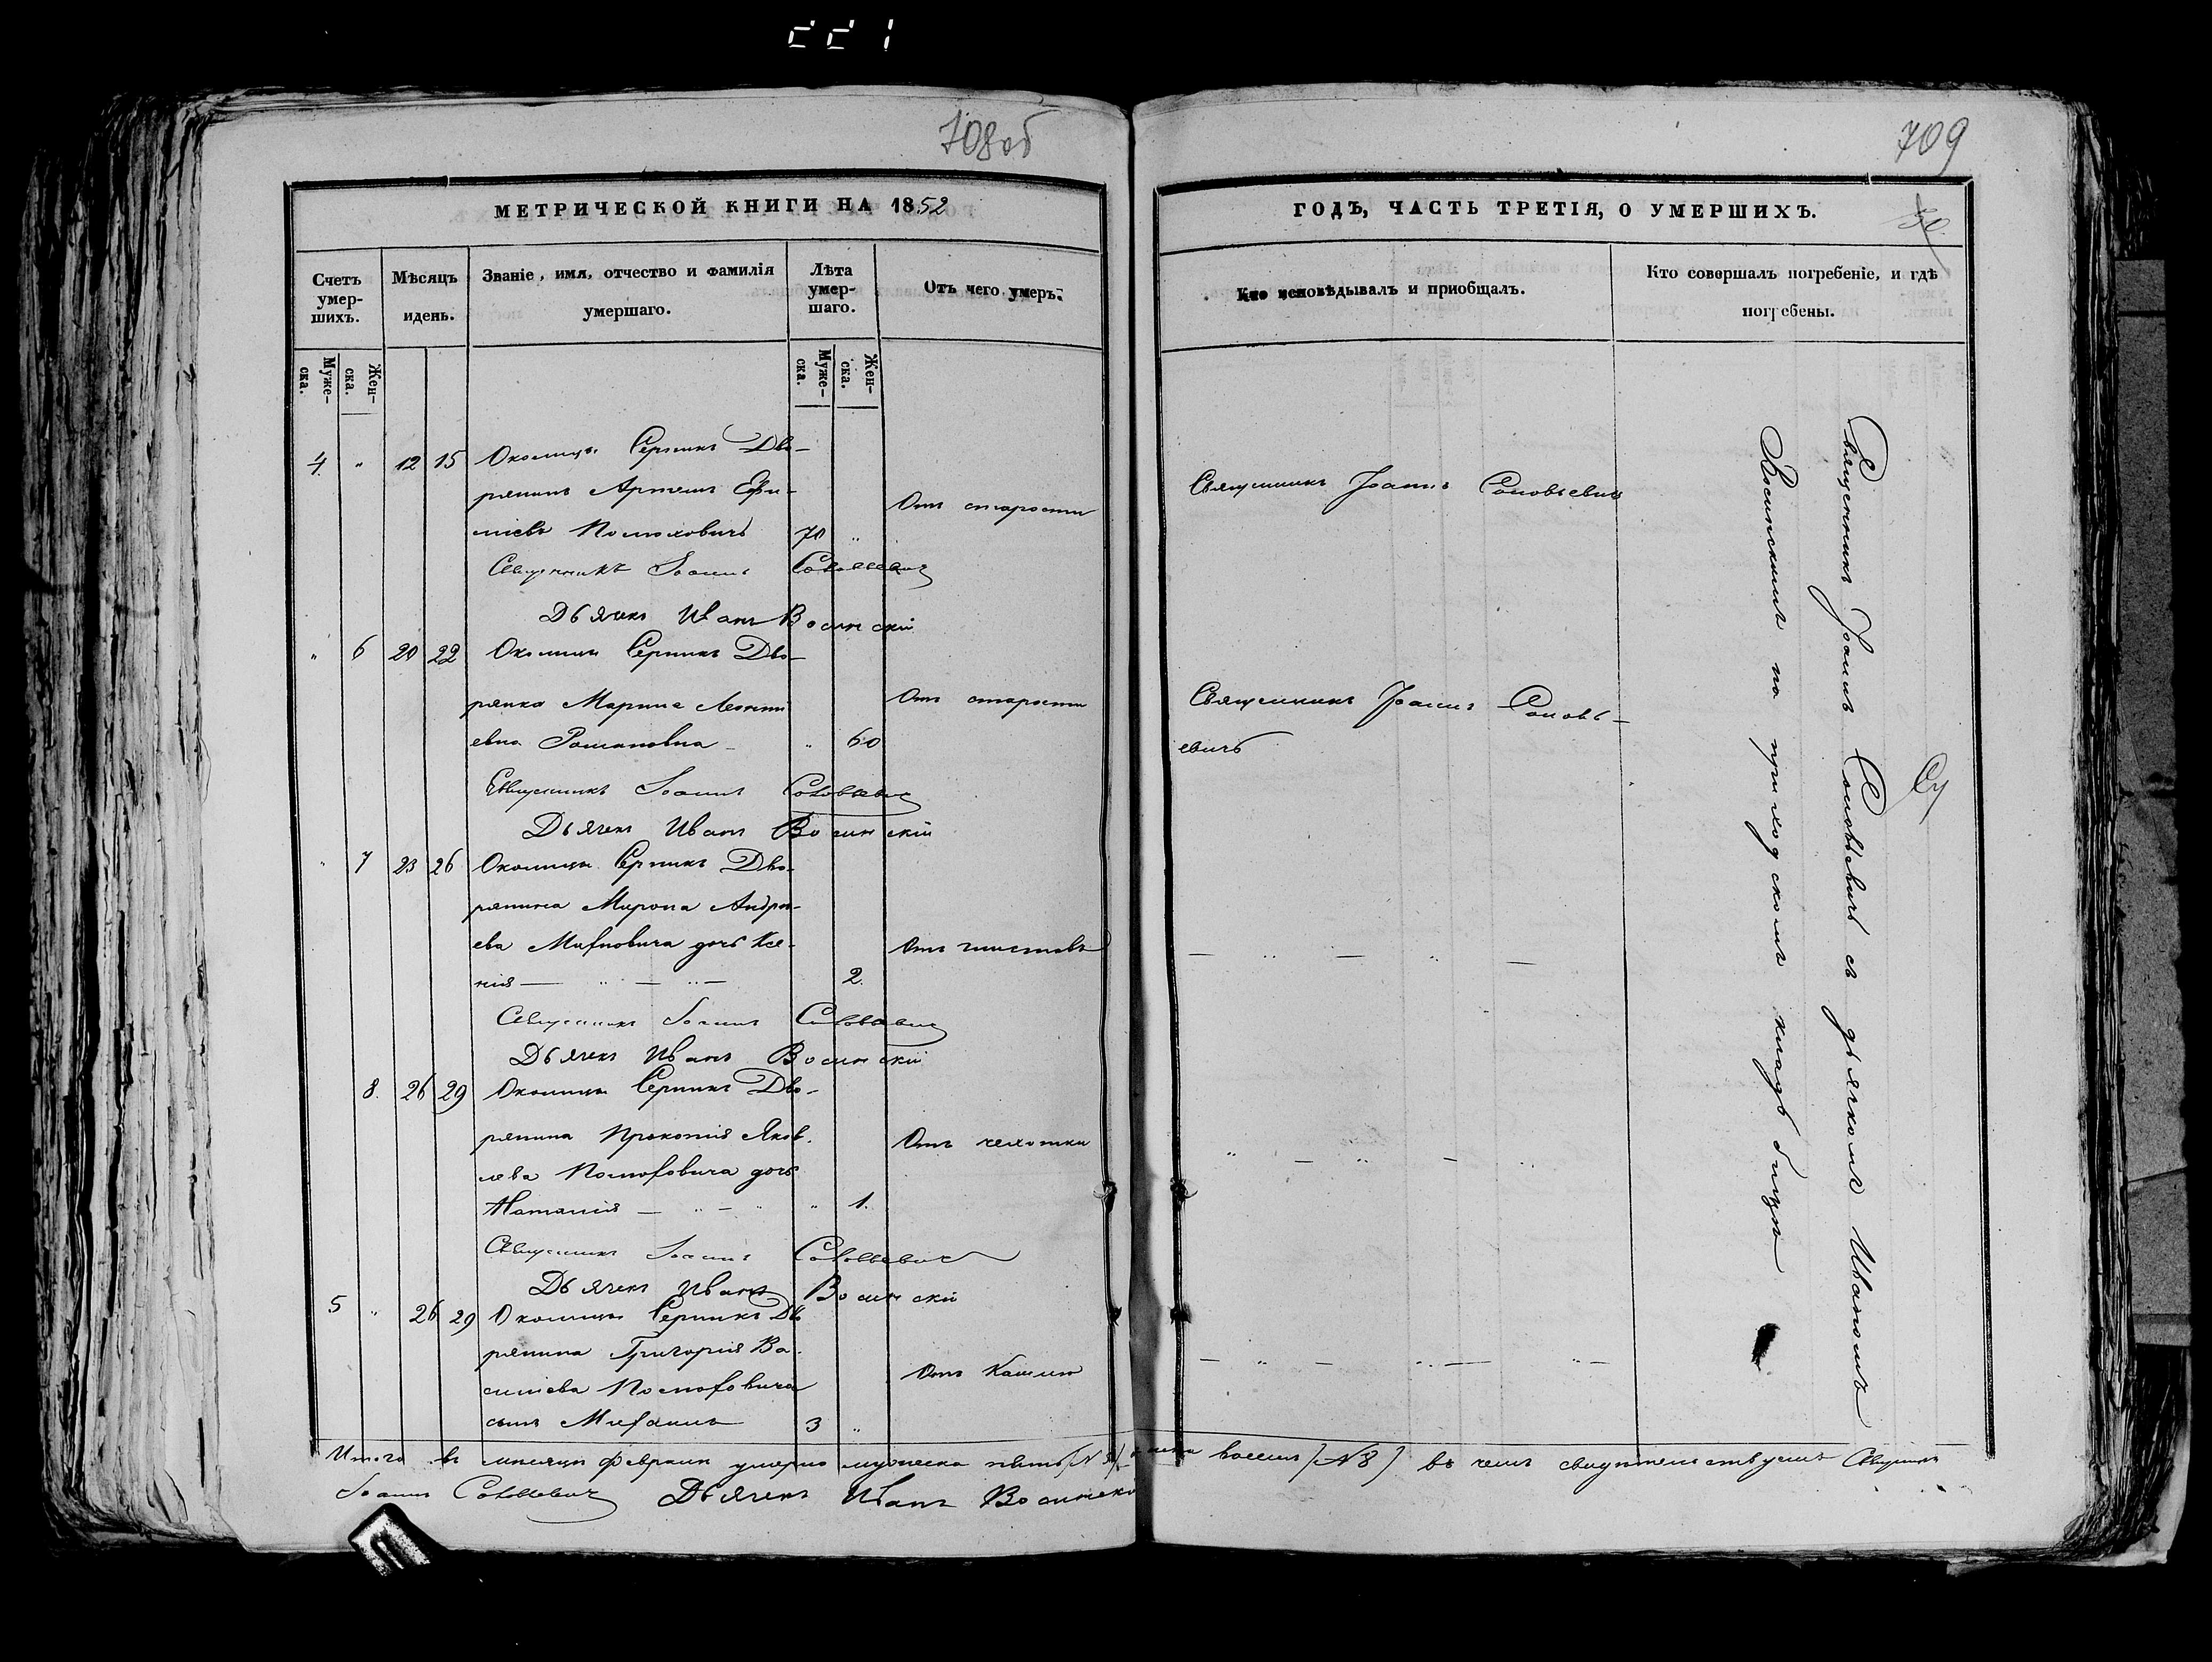 221
708об
709
МЕТРИЧЕСКОЙ КНИГИ НА 1852
ГОДЪ, ЧАСТЬ ТРЕТІЯ, О УМЕРШИХЪ.
Счетъ умер-шихъ.
Мѣсяцъ идень.
Званіе, имя, отчество и фамилія умершаго.
Лѣта умер-шаго.
Отъ чего умеръ.
Кто исповѣдывалъ и приобщалъ.
Кто совершалъ погребеніе, и гдѣ погребены.
Муже-ска.
Жен-ска.
Муже-ска.
Жен-ска.
4 " 12 15 Околицы Серникъ Дво-
рянинъ Артемъ Ефи-
міевъ Полюховичъ 70 "
Отъ старости
Священникъ Іоаннъ Соловьевичъ
Священникъ Іоаннъ Соловьевич
Дьячекъ Иванъ Восинскій
" 6 20 22 Околицы Серникъ Дво-
рянка Марина Леонті
евна Романовна " 60
Отъ старости
Священникъ Іоаннъ Соловь-
евичъ
Священникъ Іоаннъ Соловьевич
Дьячекъ Иванъ Восинскій
" 7 23 26 Околицы Серникъ Дво-
рянина Мирона Андре-
ева Михновича дочь Ксе-
нія 2.
Отъ глистовъ
Священникъ Іоаннъ Соловьевич
Дьячекъ Иванъ Восинскій
8. 26 29 Околицы Серникъ Дво-
рянина Прокопія Яков-
лева Полюховича дочь
Наталія " 1.
Отъ чехотки
Священникъ Іоаннъ Соловьевич
Дьячекъ Иванъ Восинскій
5 " 26 29 Околицы Серникъ Дво
рянина Григорія Ва-
силіева Полюховича
сынъ Михаилъ 3 "
Отъ Кашлю
Священникъ Іоаннъ Соловьевичъ съ дьячкомъ Иваномъ
Восинскимъ на приходскомъ кладьбищѣ
Итого въ месяцѣ февралѣ умерло мужеска пять женска восемь (№ 8) въ чемъ свидѣтельствуемъ Священникъ
Іоаннъ Соловьевич Дьячекъ Иванъ Восинскій